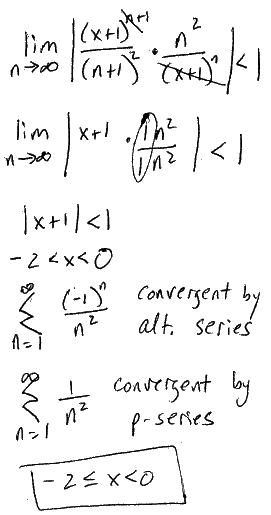 lim n→∞ | (x+1)^(n+1) / (n+1)^2 · n^2 / (x+1)^n | < 1
lim n→∞ | x+1 · 1n^2 / 1n^2 | < 1
|x+1| < 1
-2 < x < 0
∞ Σ n=1 (-1)^n / n^2 convergent by
alt. series
∞ Σ n=1 1 / n^2 convergent by
p-series
-2 ≤ x < 0